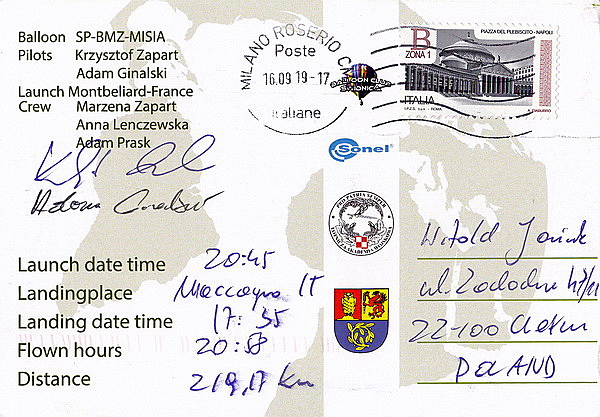 Balloon SP-BMZ-MISIA
Pilots Krzysztof Zapart
Adam Ginalski
Launch Montbeliard-France
Crew Marzena Zapart
Anna Lenczewska
Adam Prask
MILANO ROSERIO C
Poste
16.09 19-17
italiane
BALLOON CLUB
B
ZONA 1
PIAZZA DEL PLEBISCITO - NAPOLI
ITALIA
Sonel
PRO PATRIA SEMPER
Launch date time 20:45
Landingplace Maccagno IT
Landing date time 17:35
Flown hours 20:58
Distance 219,17 km
Witold
ul.
22-100 Chełm
POLAND